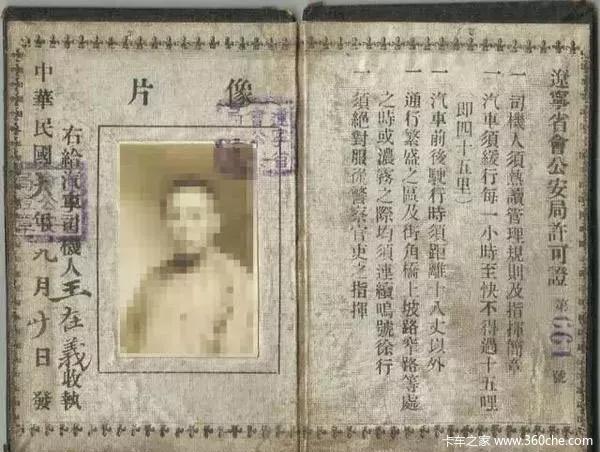 遼寧省會公安局許可證 第661號
一 司機人須熟讀管理規則及指揮簡章
一 汽車須緩行每一小時至快不得過十五哩
(即四十五里)
一 汽車前後駛行時須距離十八丈以外
一 通行繁盛之區及街角橋上坡路窄路等處
之時或濃霧之際均須連續鳴號徐行
一 須絕對服從警察官吏之指揮
像片
右給汽車司機人王在義收執
中華民國 年九月十日發
卡车之家 www.360che.com